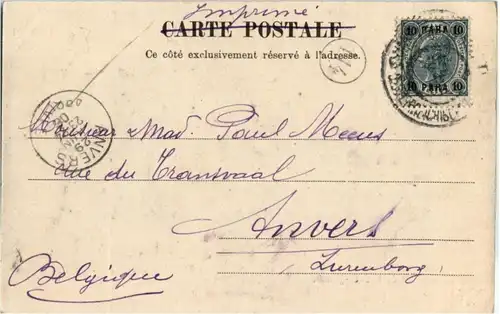 Imprimé
CARTE POSTALE
Ce côté exclusivement réservé à l'adresse.
10 PARA 10
10 PARA 10
ANVERS
Monsieur Mad. Paul Meeus
rue du Transvaal
Anvers
Zurenborg
Belgique